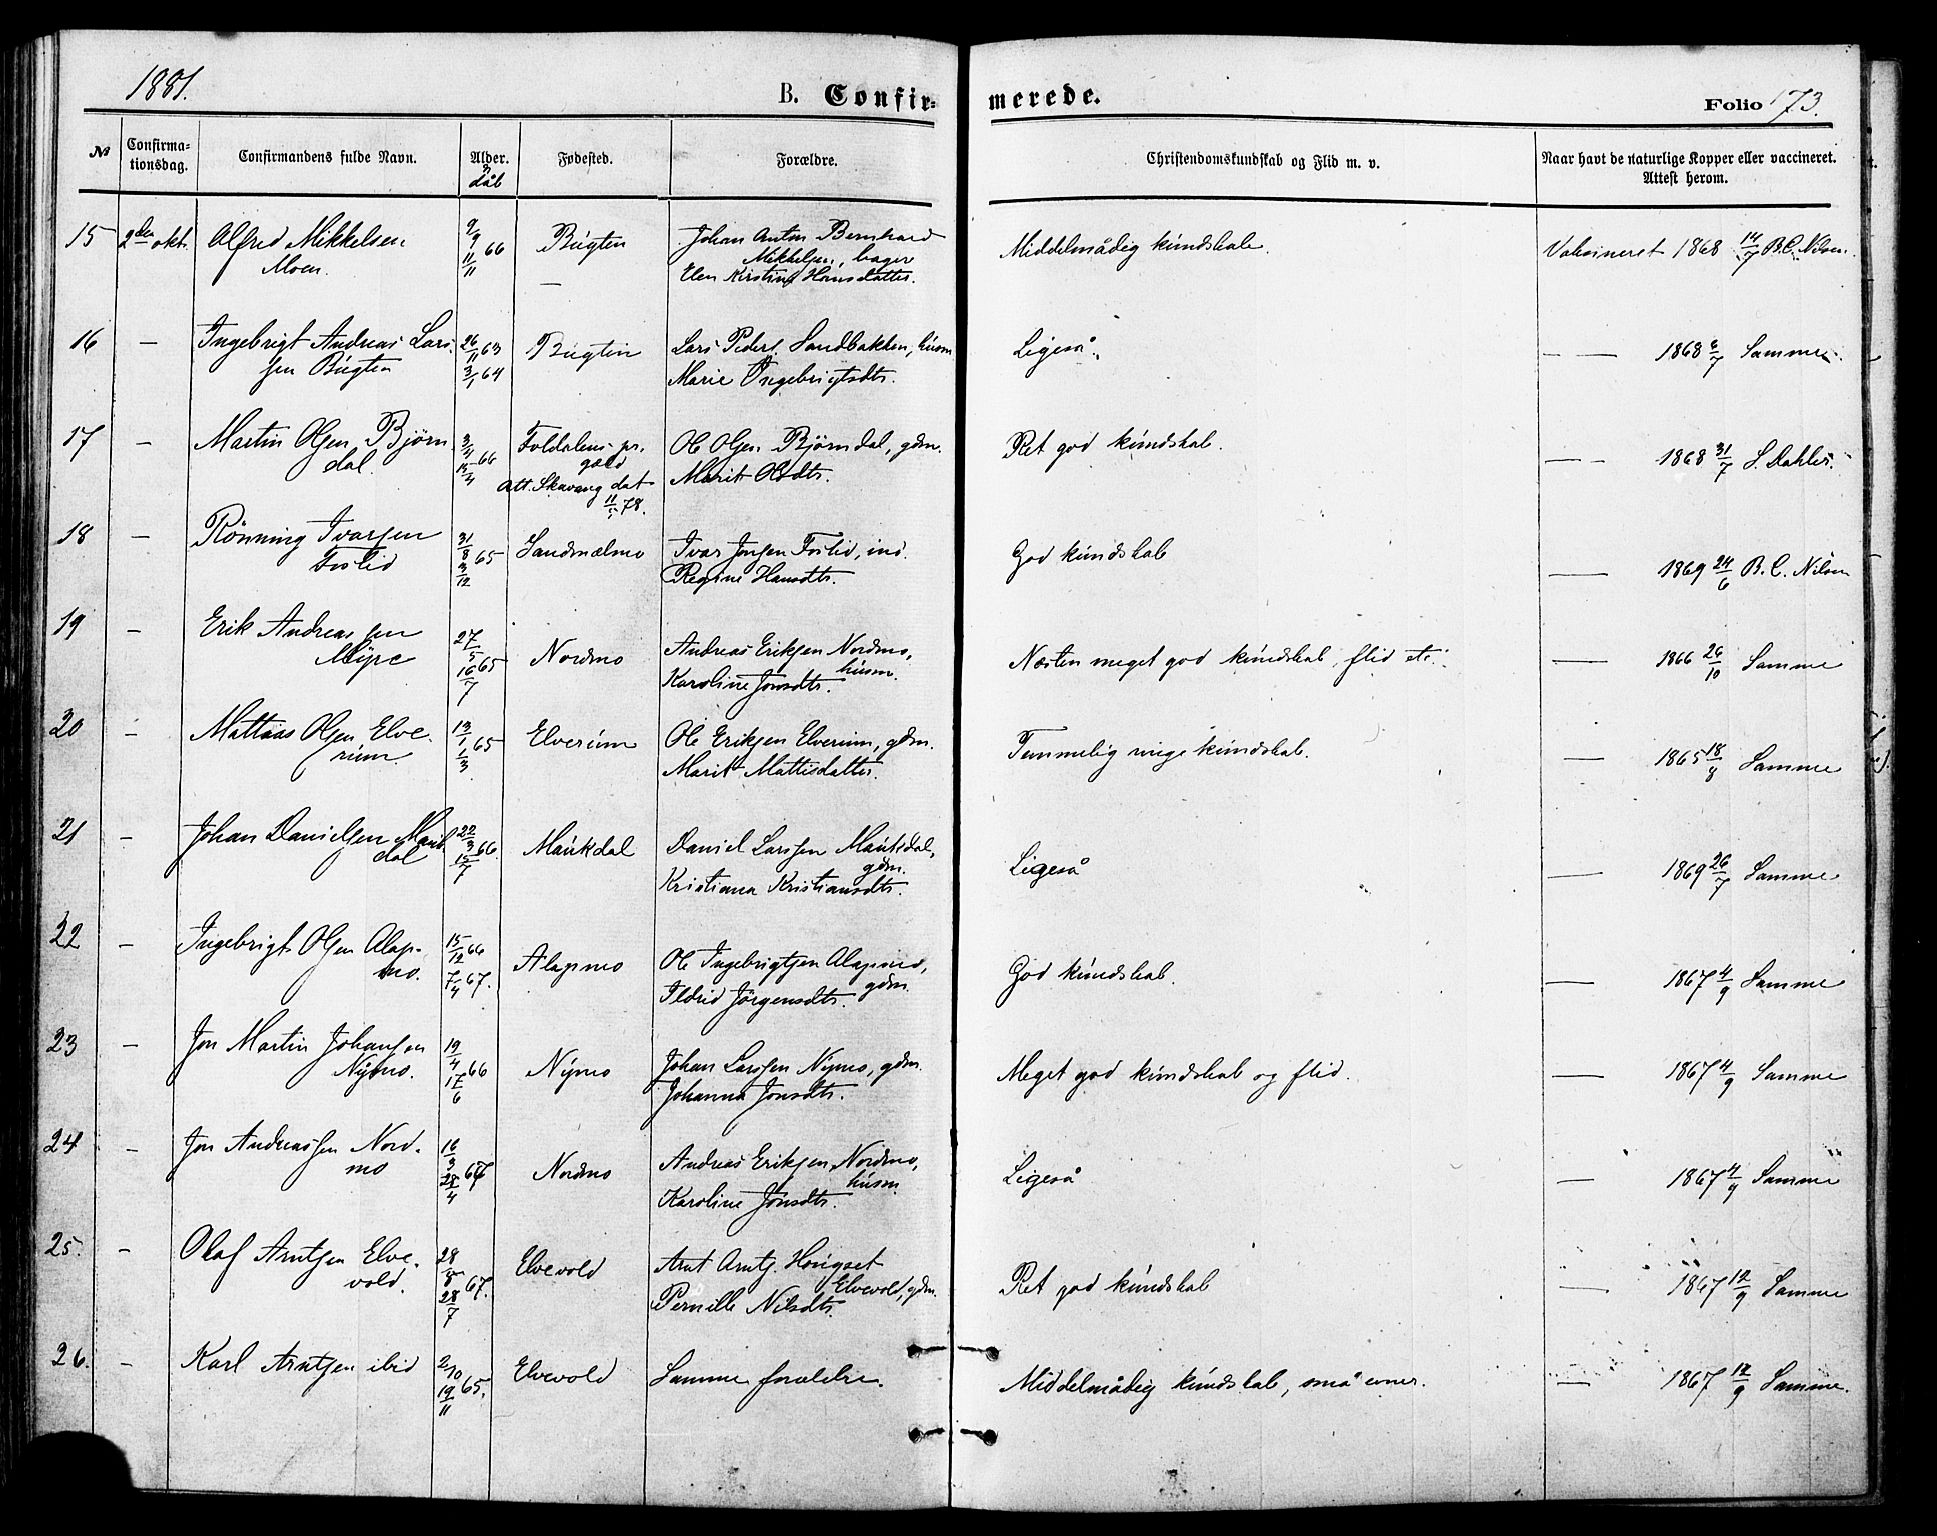 1881.
B. Confir-
merede.
Folio 173.
№
Confirma-
tionsdag.
Confirmandens fulde Navn.
Alder.
&
dåb
Fødested.
Forældre.
Christendomskundskab og Flid m. v.
Naar havt de naturlige Kopper eller vaccineret.
Attest herom.
15 2den okt. Alfred Mikkelsen 9/9 66 Bugten Johan Anton Bernhard Middelmådig kundskab. Vaksineret 1868 14/7 B.C. Nilsen.
Moen. 11/11 — Mikkelsen, bager
Elen Kirstine Hansdatter.
16 — Ingebrigt Andreas Lars- 26/11 63 Bugten Lars Peders. Sandbakken, husm. Ligeså. — — 1868 6/7 Samme.
sen Bugten 3/1 64 Marie Ingebrigtsdtr.
17 — Martin Olsen Bjørn 3/4 66 Foldalens pr. Ole Olsen Bjørndal, gdm. Ret god kundskab. — — 1868 31/7 S. Dahler.
dal. 15/4 gæld Marit Olsdtr.
Att. Skavang dat.
11/5 78.
18 — Rønning Ivarsen 31/8 65 Sandmælmo Ivar Jonsen Foslid, ind. God kundskab — 1869 24/6 B. C. Nilsen
Foslid 3/12 Regine Hansdtr.
19 — Erik Andreassen 27/5 65 Nordmo Andreas Eriksen Nordmo, Næsten meget god kundskab, flid etc. — 1866 26/10 Samme
Myre 16/7 husm.
Karoline Jonsdtr.
20 — Mattias Olsen Elve- 13/1 65 Elverum Ole Eriksen Elverum, gdm. Temmelig ringe kundskab. — 1865 18/8 Samme
rum. 1/3 Marit Mattisdatter.
21 — Johan Danielsen Mauk 22/3 66 Maukdal Daniel Larssen Maukdal, Ligeså — 1869 26/7 Samme
dal 15/7 gdm.
Kristiana Kristiansdtr.
22 — Ingebrigt Olsen Alap- 15/12 66 Alapmo Ole Ingebrigtsen Alapmo, God kundskab. — 1867 4/9 Samme
mo. 7/4 67. gdm.
Ildrid Jörgensdtr.
23 — Jon Martin Johansen 19/4 66 Nymo Johan Larssen Nymo, gdm. Meget god kundskab og flid. — 1867 4/9 Samme
Nymo. 17/6 Johanna Jonsdtr.
24 — Jon Andreassen Nord- 16/3 67 Nordmo Andreas Eriksen Nordmo, Ligeså — 1867 4/9 Samme
mo 28/4 husm.
Karoline Jonsdtr.
25. — Olaf Arntsen Elve- 28/5 67. Elvevold Arnt Arnts. Hongset Ret god kundskab — 1867 12/9 Samme
vold. 28/7 Elvevold, gdm.
Pernille Nilsdtr.
26. — Karl Arntsen ibid 2/10 65. Elvevold Samme forældre. Middelmådig kundskab, små evner. — 1867 12/9 Samme.
19/11